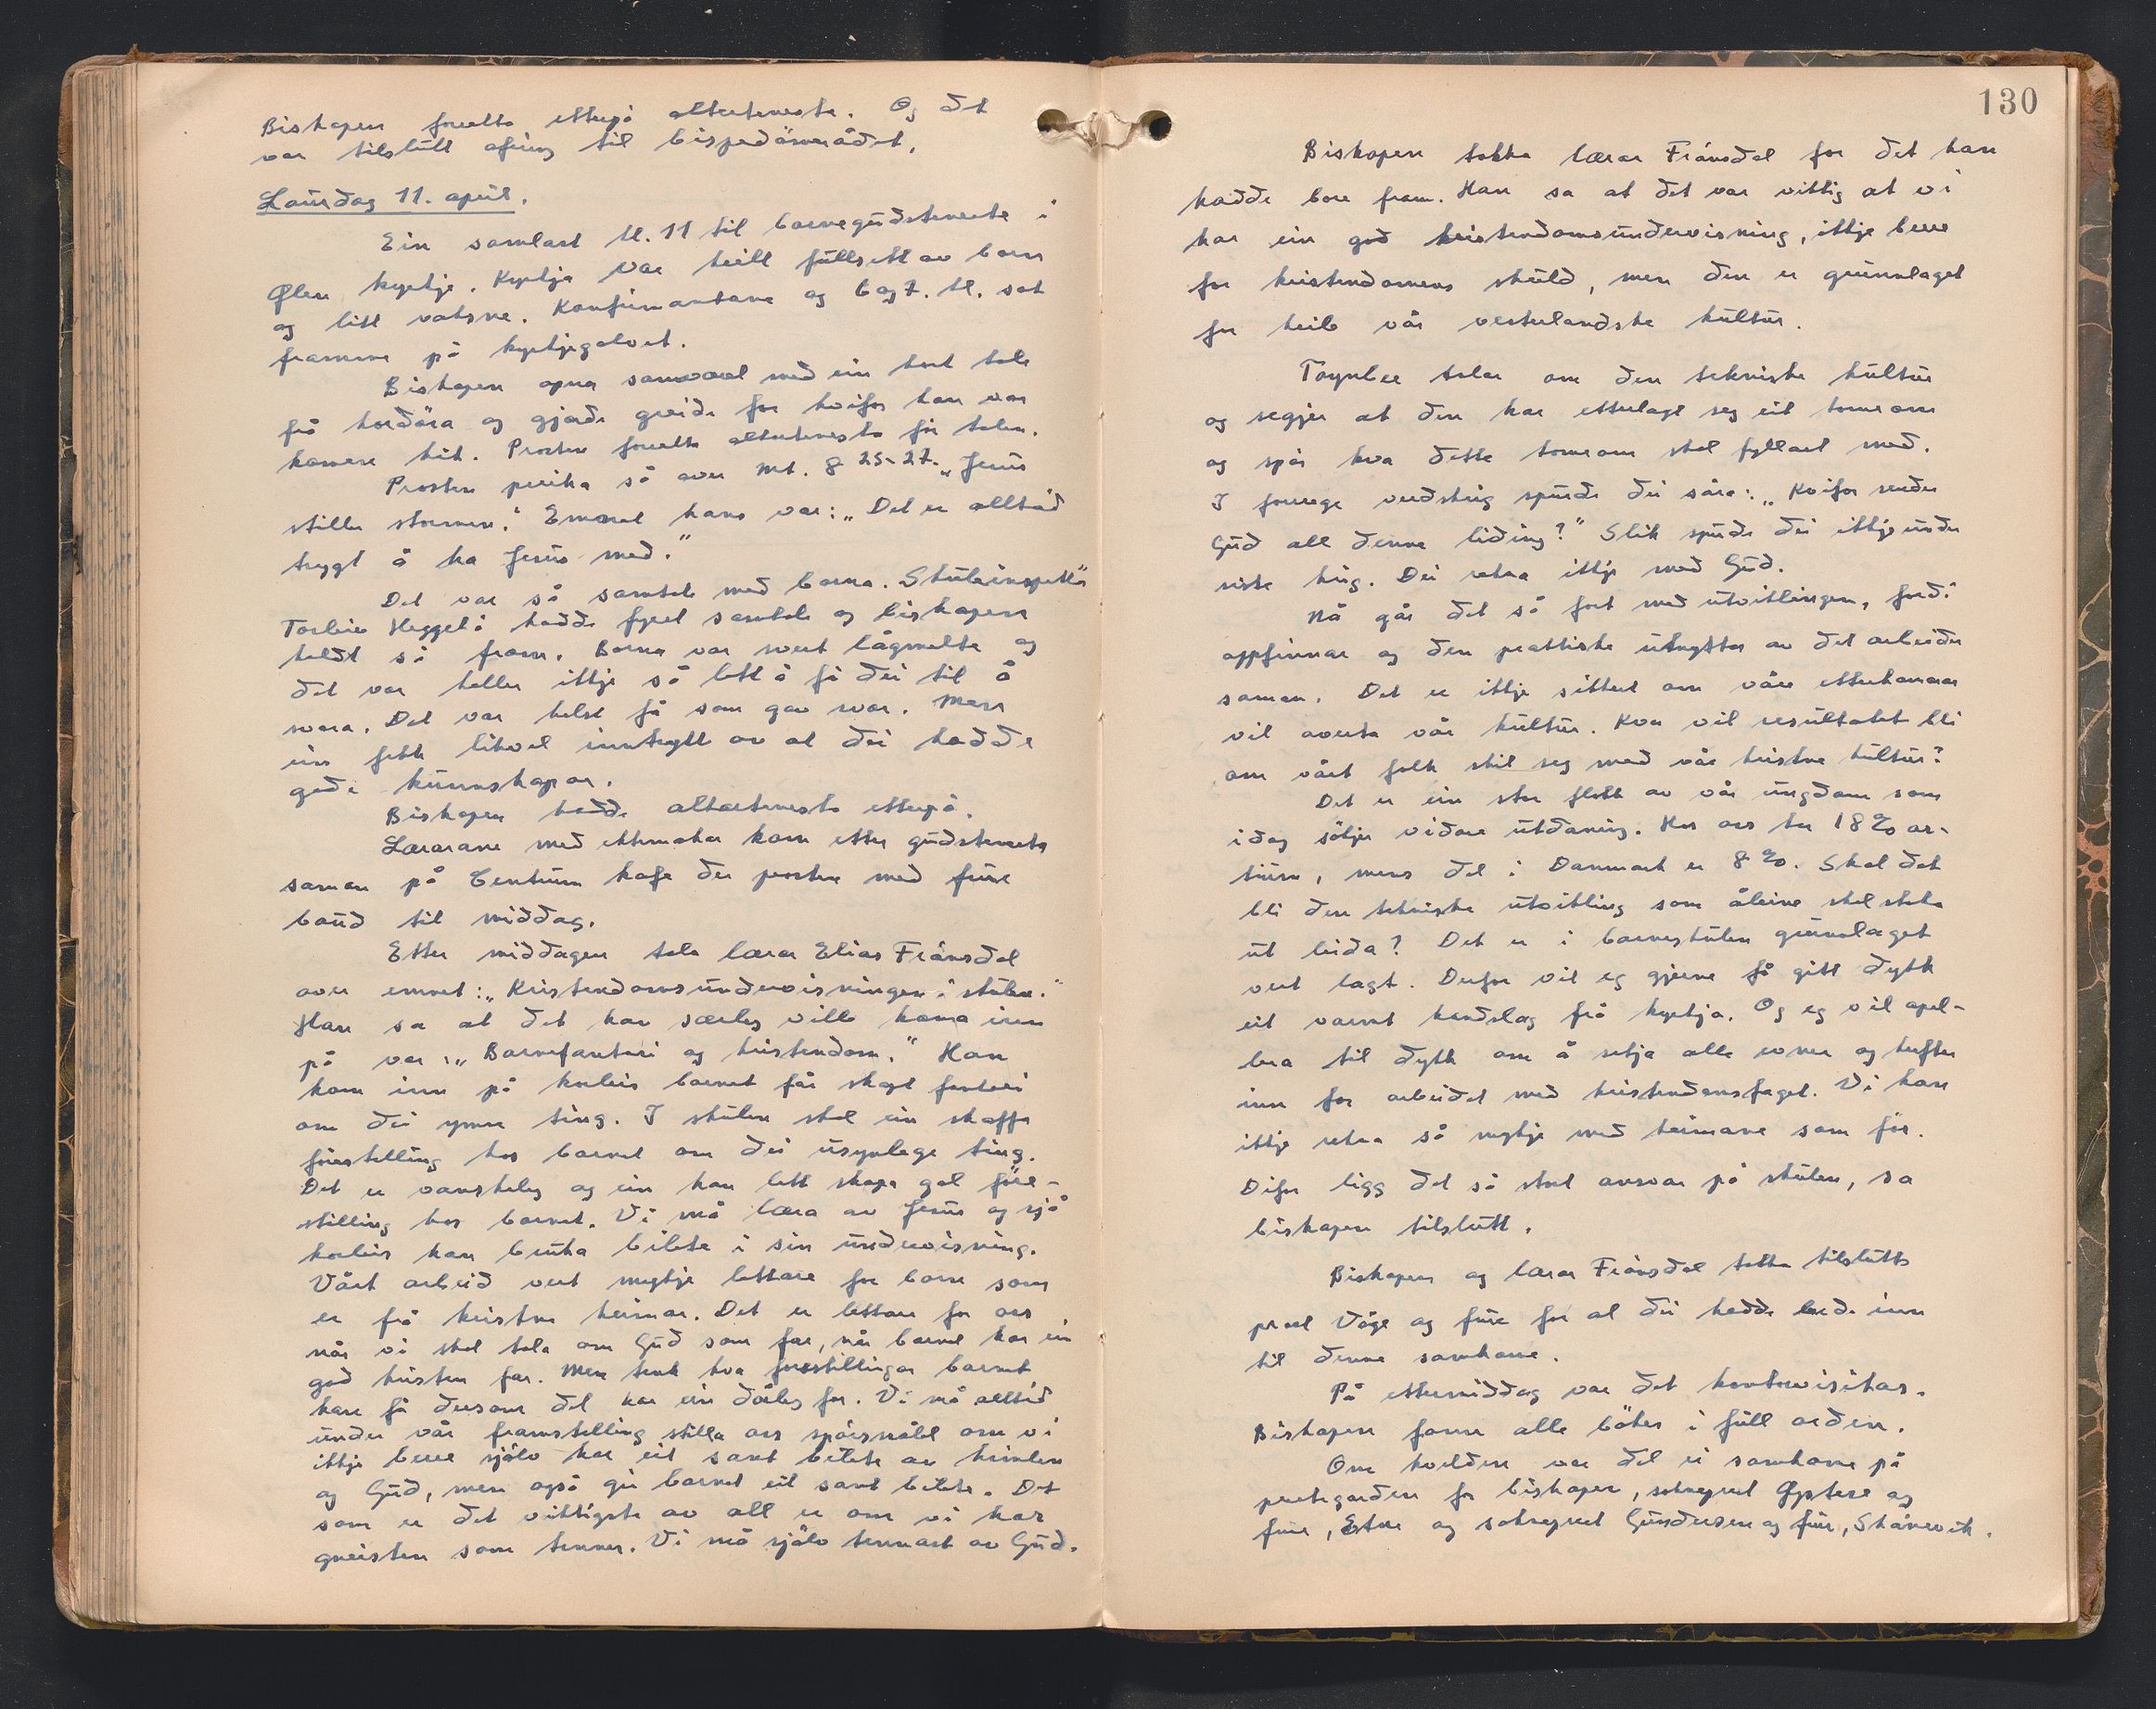 Biskopen forretta etterpå altarteneste. Og det
var tilslutt ofring til bispedömeråðet.
Laurdag 11. april.
Ein samlast kl. 11 til barnegudsteneste i
Ølen kyrkje. Kyrkja var heilt fullsett av born
og litt vaksne. Konfirmantane og 6 og 7. kl. sat
framme på kyrkjegolvet.
Biskopen opna samværet med ein kort tale
frå kordöra og gjorde greide for kvifor han var
komen hit. Prosten forretta altarteneste før talen.
Prosten preika så over Mt. 8 25-27. „Jesus
stiller stormen." Emnet hans var: „Det er alltid
trygt å ha Jesus med."
Det var så samtale med borna. Skuleinspektör
Torleiv Heggelö hadde fyrst samtale og biskopen
heldt så fram. Borna var svert lågmælte og
det var heller ikkje så lett å få dei til å
svara. Det var helst få som gav svar. Men
ein fekk likevel inntrykk av at dei hadde
gode kunnskapar.
Biskopen hadde altarteneste etterpå.
Lærarane med ektemakar kom etter gudstenesta
saman på Centrum kafe der prosten med frue
baud til middag.
Etter middagen tala lærar Elias Frånsdal
over emnet: „Kristendomsundervisningen i skulen."
Han sa at det han særleg ville koma inn
på var: „Barnefantasi og kristendom." Han
kom inn på korleis barnet får skapt fantasi
om dei ymse ting. I skulen skal ein skaffe
förestelling hos barnet om dei usynlege ting.
Det er vanskeleg og ein kan lett skapa gal före-
stilling hos barnet. Vi må læra av Jesus og sjå
korleis han bruka bilete i sin undervisning.
Vårt arbeid vert mykje lettare for born som
er frå kristne heimar. Det er lettare for oss
når vi skal tala om Gud som far, når barnet har ein
god kristen far. Men tenk kva forestillingar barnet
kan få dersom det har ein dårleg far. Vi må alltid
under vår framstelling stilla oss spörsmålet om vi
ikkje berre sjølv har eit sant bilete av himlen
og Gud, men også gir barnet eit sant bilete. Det
som er det viktigste av alt er om vi har
gneisten som tenner. Vi må sjølv tennast av Gud.
130
Biskopen takka lærar Frånsdal for det han
hadde bore fram. Han sa at det var viktig at vi
har ein god kristendomsundervisning, ikkje berre
for kristendomens skuld, men den er grunnlaget
for heile vår vesterlandske kultur.
Toynbee talar om den tekniske kultur
og segjer at den har etterlagt seg eit tomrom
og spör kva dette tomrom skal fyllast med.
I forrige verdskrig spurde dei såra: „Kvifor sender
Gud all denne liding?" Slik spurde dei ikkje under
siste krig. Dei rekna ikkje med Gud.
Nå går det så fort med utviklingen, fordi
oppfinnar og den praktiske utnyttar av det arbeider
saman. Det er ikkje sikkert om våre etterkomarar
vil overta vår kultur. Kva vil resultatet bli
om vårt folk skil seg med vår kristne kultur?
Det er ein stor flokk av vår ungdom som
idag sökjer vidare utdaning. Hos oss tar 18 % ar-
tium, mens det i Danmark er 8 %. Skal det
bli den tekniske utvikling som åleine skal staka
ut leida? Det er i barneskulen grunnlaget
vert lagt. Derfor vil eg gjerne få gitt dykk
eit varmt handslag frå kyrkja. Og eg vil apel-
lera til dykk om å setja alle evner og krefter
inn for arbeidet med kristendomsfaget. Vi kan
ikkje rekna så mykje med heimane som för.
Difor ligg det så stort ansvar på skulen, sa
biskopen tilslutt.
Biskopen og lærar Frånsdal takka tilslutt
prost Våge og frue for at dei hadde bede inn
til denne samkome.
På ettermiddag var det kontorvisitas.
Biskopen fann alle böker i full orden.
Om kvelden var det ei samkome på
prestegarden for biskopen, sokneprest Øystese og
frue, Etne og sokneprest Gundersen og frue, Skånevik.